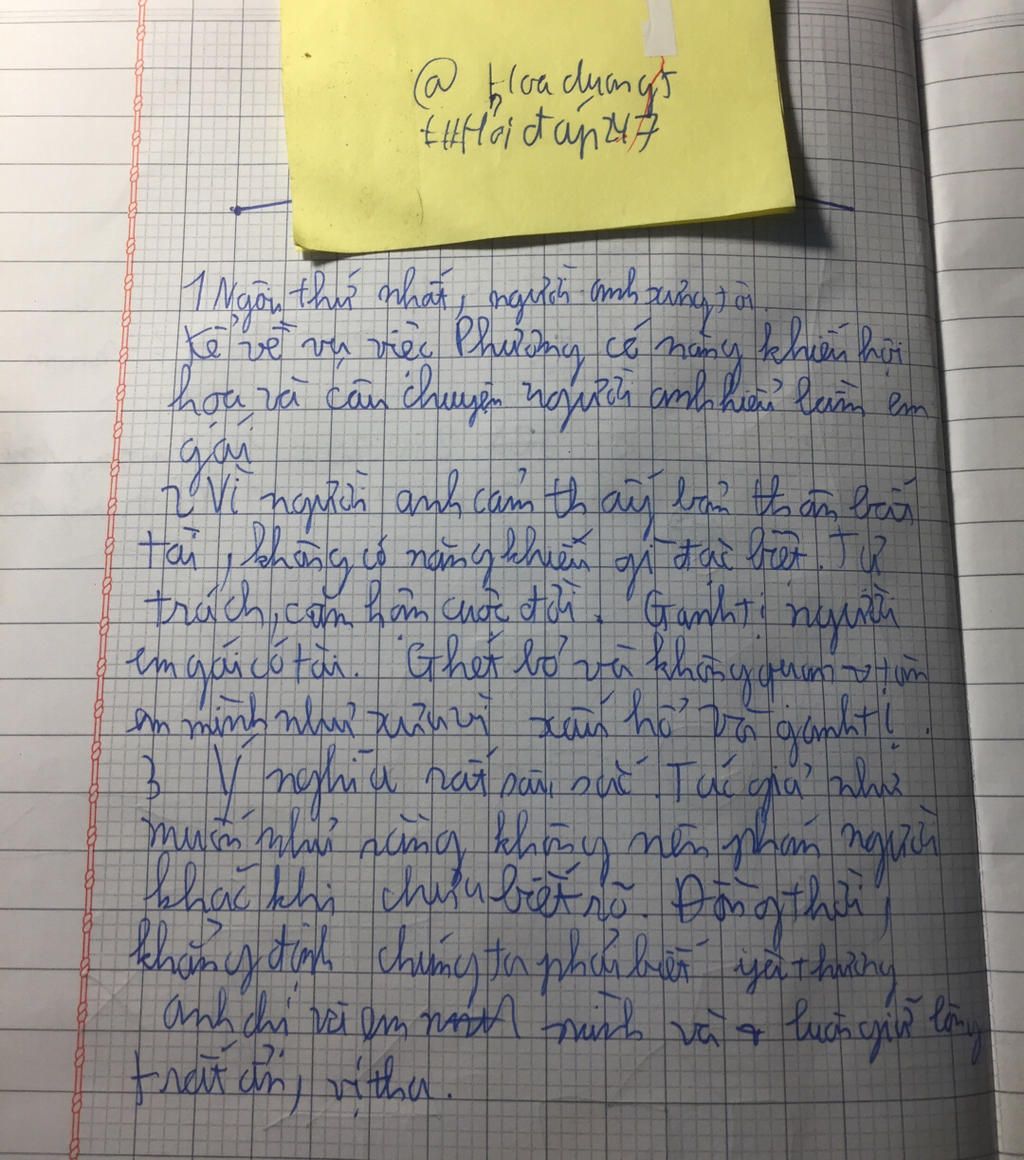 @ Hoaduong5
t#Hỏiđáp247
1 Ngôi thứ nhất, người anh xưng tôi.
Kể về vụ việc Phương có năng khiếu hội
hoa và câu chuyện người anh hiểu lầm em
gái
2 Vì người anh cảm thấy bản thân bất
tài, không có năng khiếu gì đặc biệt. Tự
trách, căm hờn cuộc đời. Ganh tị người
em gái có tài. Ghét bỏ và không quan tâm
em mình như xưa vì xấu hổ và ganh tị.
3 Ý nghĩa rất sâu sắc. Tác giả như
muốn nhủ rằng không nên phán người
khác khi chưa biết rõ. Đồng thời,
khẳng định chúng ta phải biết yêu thương
anh chị và em mình và luôn giữ lòng
trắc ẩn, vị tha.